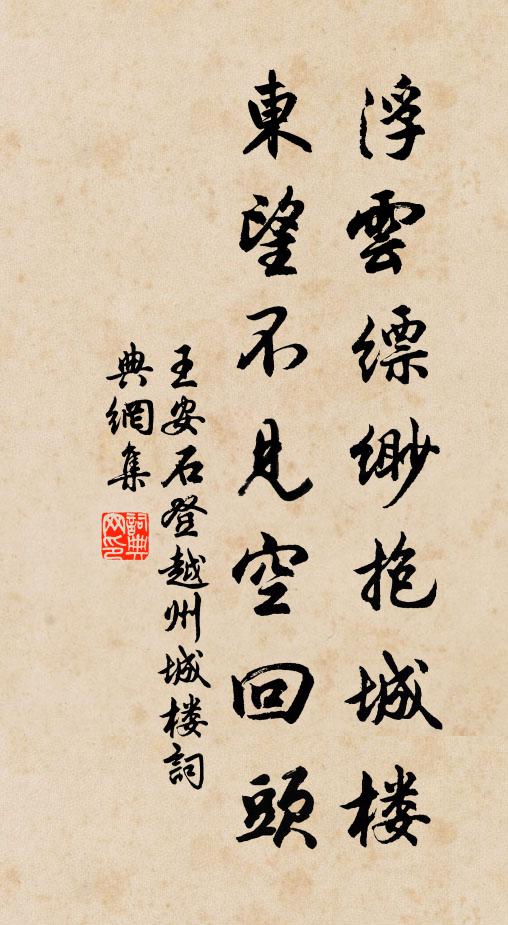 浮雲縹緲抱城楼
東望不見空回頭
王安石登越州城楼詞
典網集
詞典網印